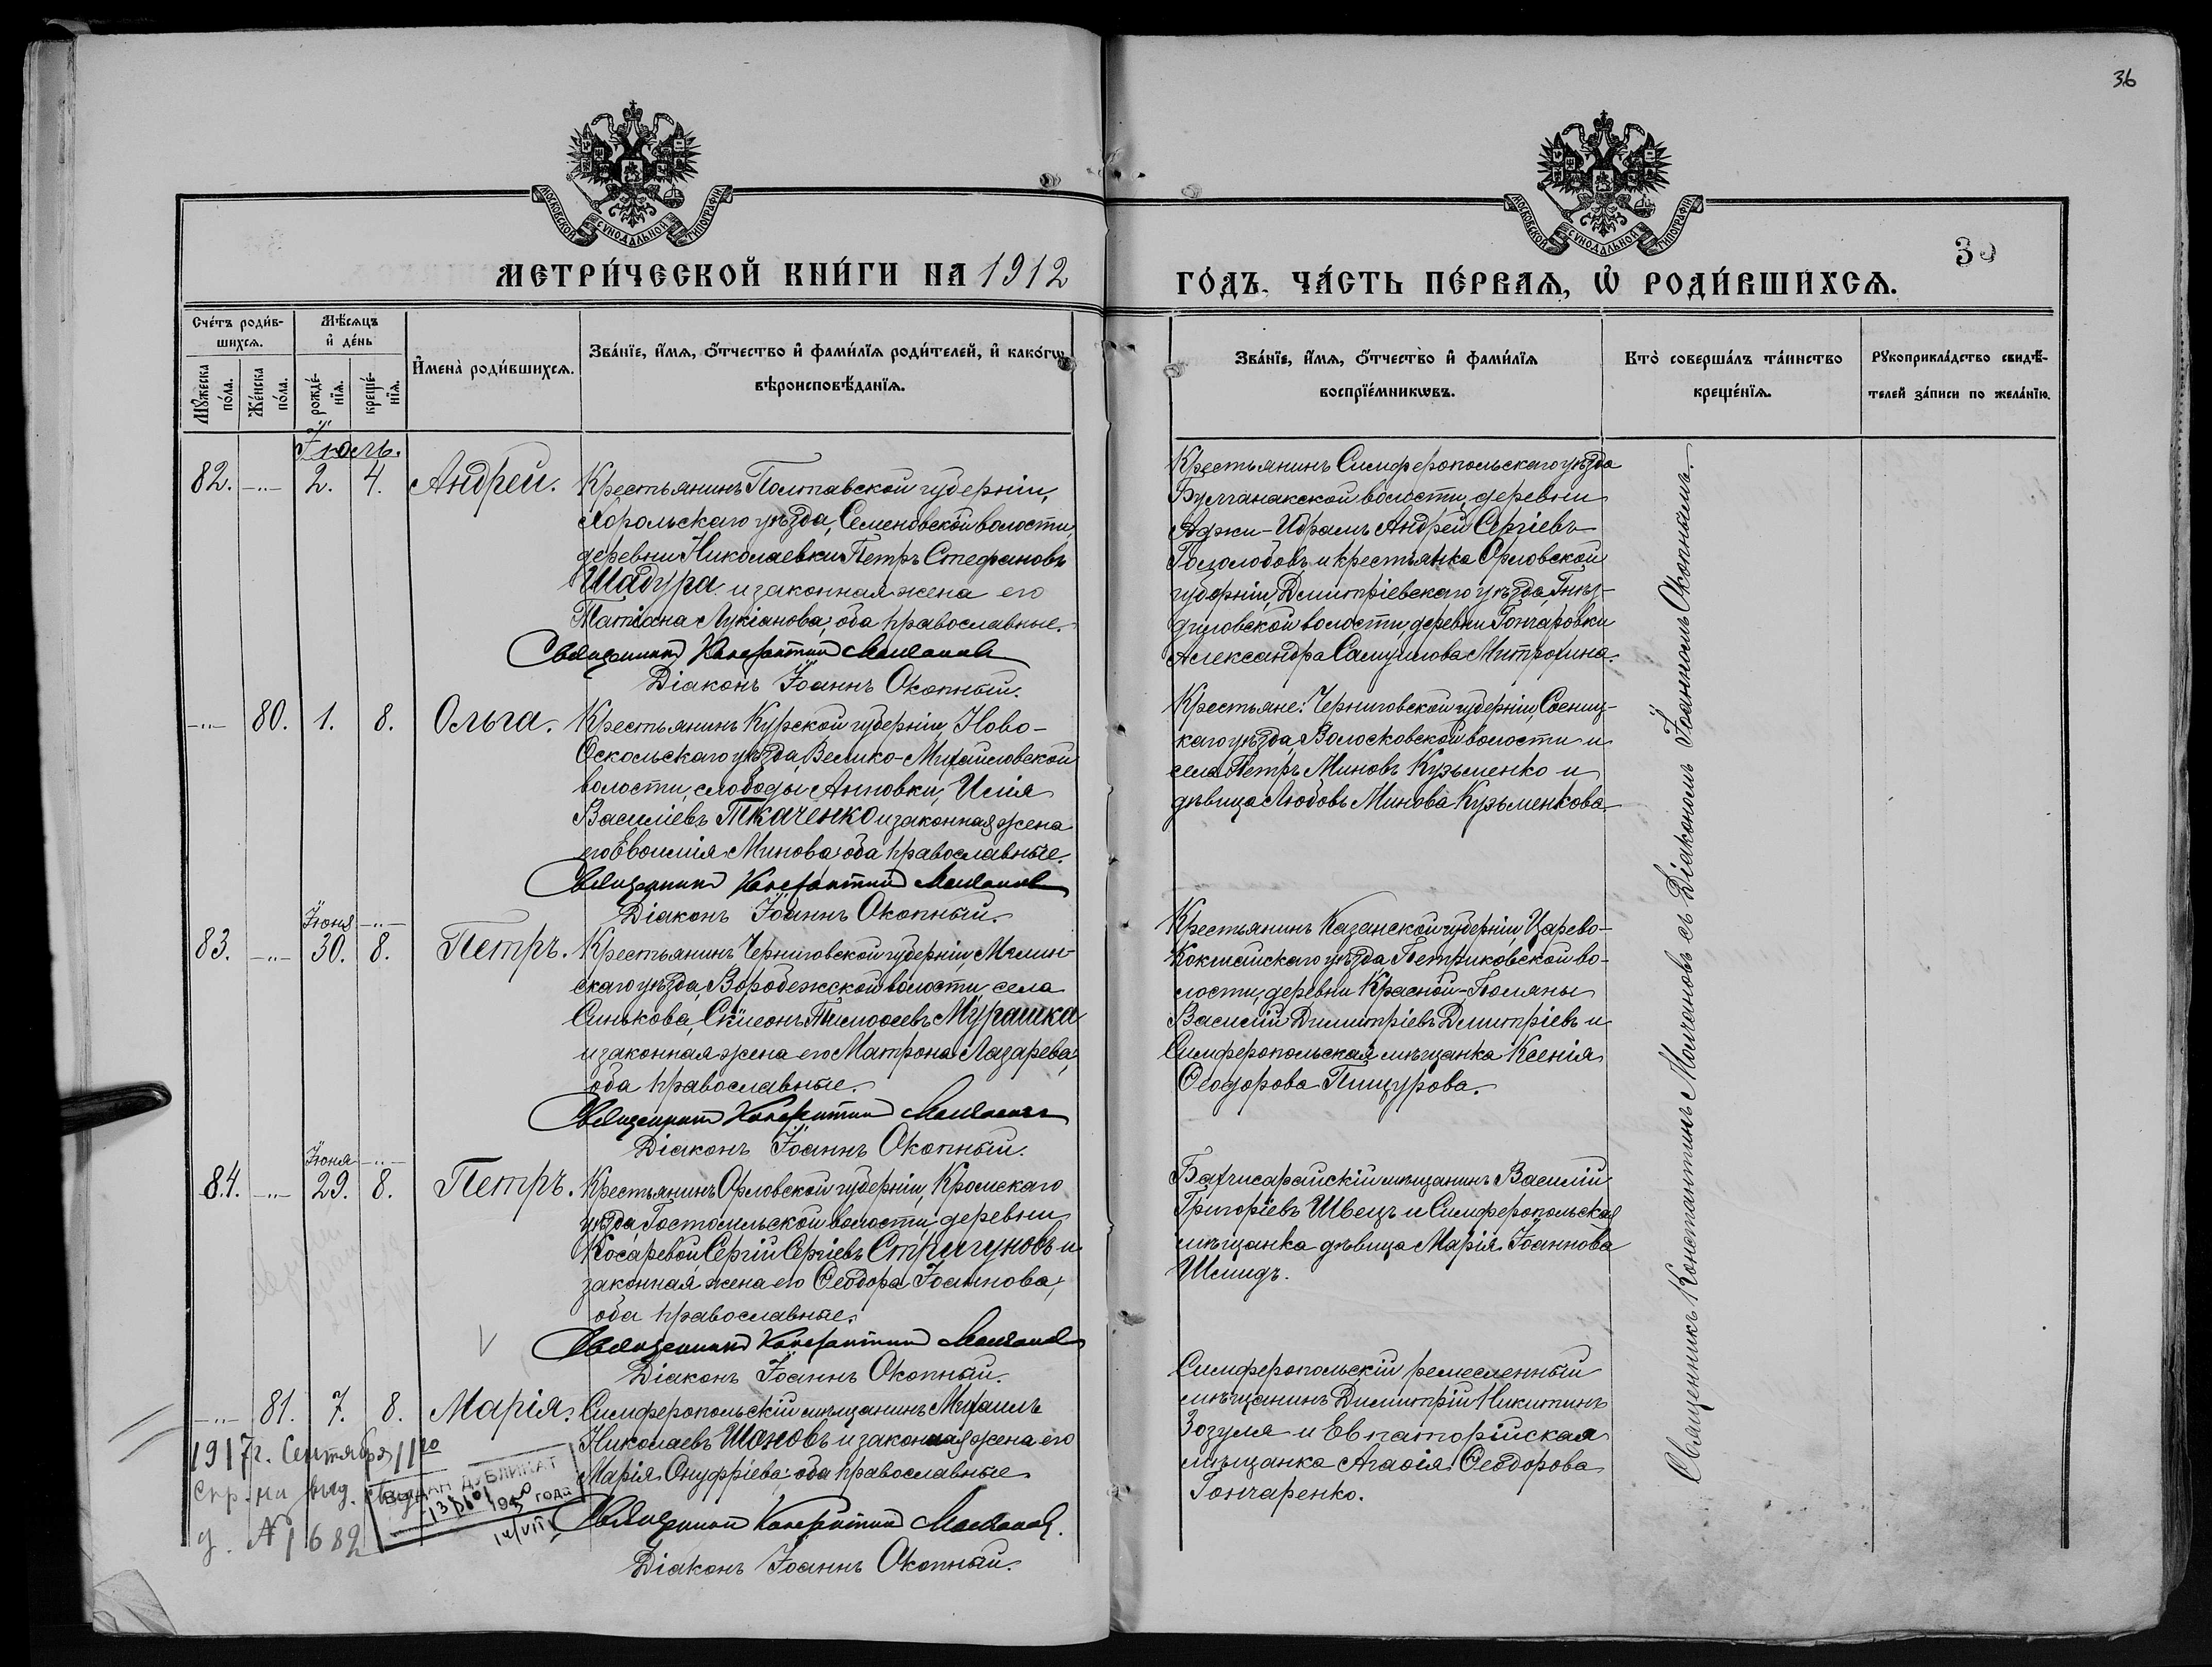 36
МОСКОВСКОЙ СУНОДАЛЬНОЙ ТИПОГРАФІИ
МОСКОВСКОЙ СУНОДАЛЬНОЙ ТИПОГРАФІИ
35
МЕТРИ́ЧЕСКОЙ КНИ́ГИ НА 1912
ГО́ДЪ, ЧА́СТЬ ПЕ́РВАѦ, Ѡ҆ РОДИ́ВШИХСѦ.
Сче́тъ роди́в-
шихсѧ.
Мꙋ́жеска
по́ла.
Же́нска
по́ла.
Мѣ́сѧцъ
и҆ де́нь
рожде́-
нїѧ.
креще́-
нїѧ.
И҆мена̀ роди́вшихсѧ.
Зва́нїе, и҆́мѧ, ѻ҆́тчество и҆ фами́лїѧ роди́телей, и҆ како́гѡ
вѣроисповѣ́данїѧ.
Зва́нїе, и҆́мѧ, ѻ҆́тчество и҆ фами́лїѧ
воспрїе́мникѡвъ.
Кто̀ соверша́лъ та́инство
креще́нїѧ.
Рꙋкоприкла́дство свидѣ́-
телей за́писи по жела́нїю.
Іюль.
82. -"- 2. 4. Андрей.
Крестьянинъ Полтавской губерніи,
Хорольскаго уѣзда, Семеновской волости,
деревни Николаевки Петръ Стефановъ
Шадура и законная жена его
Татіана Лукіанова, оба православные.
Священникъ Константинъ Молчановъ
Діаконъ Іоаннъ Окопный.
Крестьянинъ Симферопольскаго уѣзда
Булганакской волости, деревни
Аджи-Ибрамъ Андрей Сергіевъ
Гололобовъ и крестьянка Орловской
губерніи, Дмитріевскаго уѣзда,
волости, деревни Гончаровки
Александра Самуилова Митрохина.
-"- 80. 1. 8. Ольга.
Крестьянинъ Курской губерніи, Ново-
Оскольскаго уѣзда, Велико-Михайловской
волости, слободы Анновки, Илія
Василіевъ Ткаченко и законная жена
его Евѳимія Минова, оба православные.
Священникъ Константинъ Молчановъ
Діаконъ Іоаннъ Окопный.
Крестьяне: Черниговской губерніи, Сосниц-
каго уѣзда, Волосковской волости и
села Петръ Миновъ Кузьменко и
дѣвица Любовь Минова Кузьменкова.
Іюня -"-
83. -"- 30. 8. Петръ.
Крестьянинъ Черниговской губерніи, Мглин-
скаго уѣзда, Воробежской волости, села
Синькова, Сѵмеонъ Тимоѳеевъ Мурашка
и законная жена его Матрона Лазарева,
оба православные.
Священникъ Константинъ Молчановъ
Діаконъ Іоаннъ Окопный.
Крестьянинъ Казанской губерніи, Царево-
Кокшайскаго уѣзда Петриковской во-
лости, деревни Красной-Поляны
Василій Димитріевъ Дмитріевъ и
Симферопольская мѣщанка Ксенія
Ѳеодорова Пищурова.
Іюня -"-
84. -"- 29. 8. Петръ.
Крестьянинъ Орловской губерніи, Кромскаго
уѣзда, Гостомльской волости, деревни
Косаревой, Сергій Сергіевъ Стригуновъ и
законная жена его Ѳеодора Іоаннова,
оба православные.
Священникъ Константинъ Молчановъ
Діаконъ Іоаннъ Окопный.
Бахчисарайскій мѣщанинъ Василій
Григоріевъ Швецъ и Симферопольская
мѣщанка дѣвица Марія Іоаннова
Шмидъ.
-"- 81. 7. 8. Марія.
Симферопольскій мѣщанинъ Михаилъ
Николаевъ Шоховъ и законная жена его
Марія Онуфріева, оба православные
Священникъ Константинъ Молчановъ.
Діаконъ Іоаннъ Окопный.
Симферопольскій ремесленный
мѣщанинъ Димитрій Никитинъ
Зозуля и Евпаторійская
мѣщанка Агаѳія Ѳеодорова
Гончаренко.
1917г. Сентября 11го
выд.
№ 1682
ВЫДАН ДУБЛИКАТ
195 года
Священникъ Константинъ Молчановъ съ Діакономъ Іоанномъ Окопнымъ.